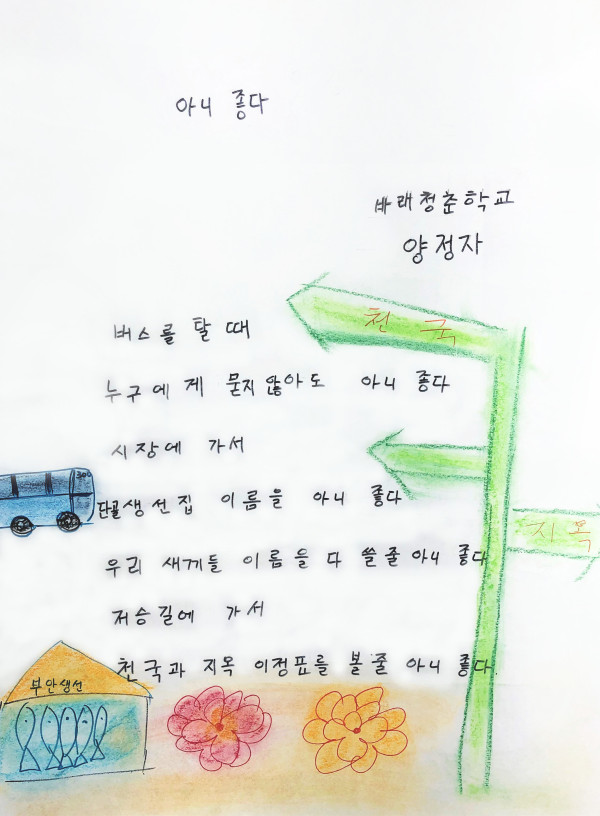 아니 좋다
바래청춘학교
양정자
천국
버스를 탈 때
누구에게 묻지 않아도 아니 좋다
시장에 가서
300
단골생선집 이름을 아니 좋다
지옥
우리 새끼들 이름을 다 쓸줄 아니 좋다
저승길에 가서
천국과 지옥 이정표를 볼 줄 아니 좋다.
부안생선